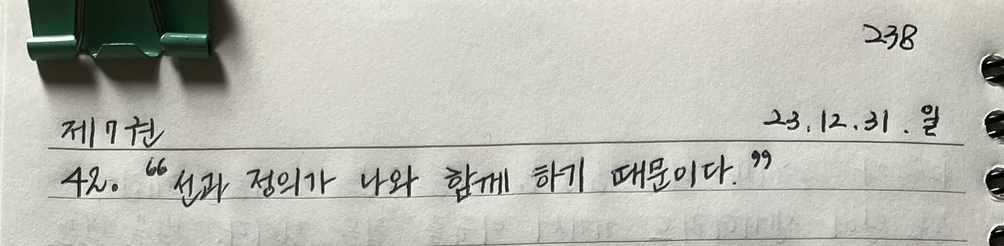 238
제7권
23.12.31.일
42. "선과 정의가 나와 함께 하기 때문이다."